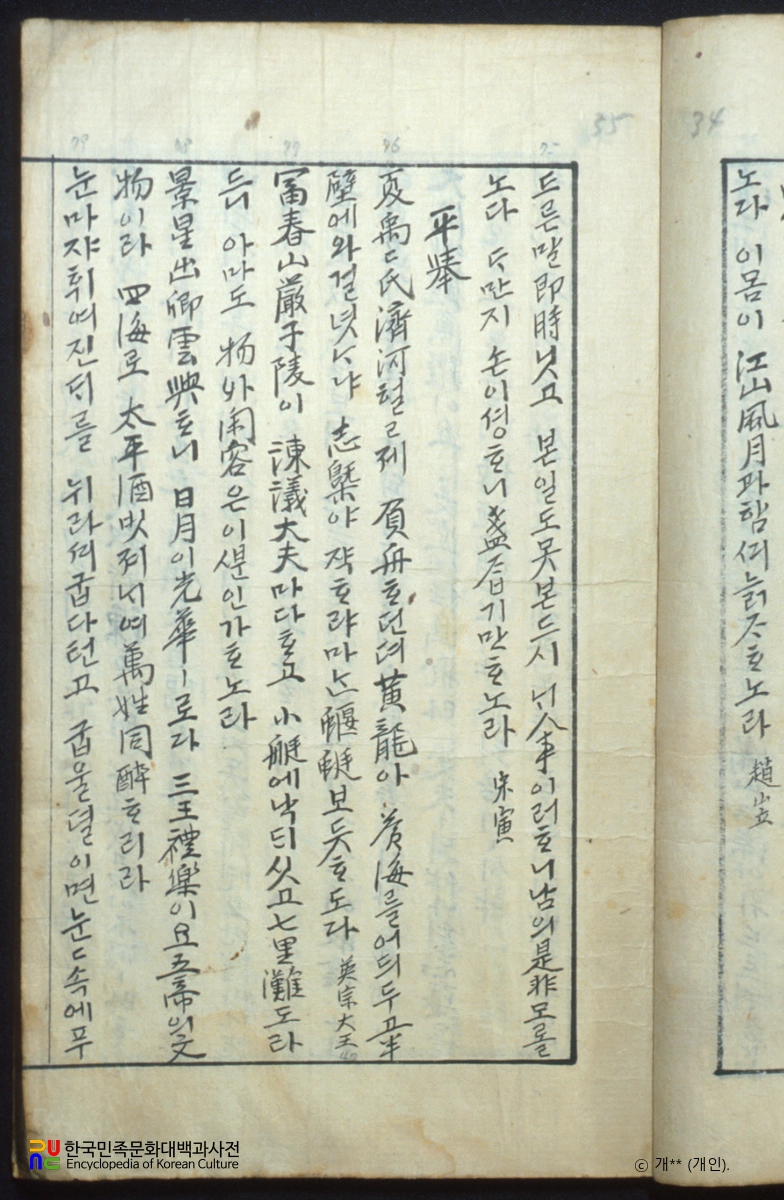 34
노다 이몸이 江山風月과 함ᄭᅴ 늙ᄌᆞᄒᆞ노라 趙岦
35
드른 말 即時 닛고 본 일도 못 본 드시 ᄂᆡ 人事 이러ᄒᆞᄆᆡ 남의 是非 모롤
노다 다만지 손이 셩ᄒᆞ니 盞 잡기만 ᄒᆞ노라 宋寅
平擧
夏禹氏 濟河헐 ᄅ제 負舟ᄒᆞ던 뎌 黃龍아 滄海를 어듸 두고 半
壁에 와 걸녓ᄂᆞ냐 志槩야 쟉ᄒᆞ랴마ᄂᆞᆫ 蝘蜓 보듯 ᄒᆞ도다 英宗大王
富春山 嚴子陵이 諫議大夫 마다ᄒᆞ고 小艇에 낙ᄃᆡ 싯고 七里灘 도라
드니 아마도 物外閑客은 이ᄲᅮᆫ인가 ᄒᆞ노라
景星出 卿雲興ᄒᆞ니 日月이 光華ㅣ로다 三王禮樂이요 五帝의 文
物이라 四海로 太平酒 비져ᄂᆡ여 萬姓同醉ᄒᆞ리라
눈 마쟈 휘여진 ᄃᆡ를 뉘라셔 굽다턴고 굽을 졀이면 눈 속에 푸
한국민족문화대백과사전
Encyclopedia of Korean Culture
ⓒ 개** (개인).